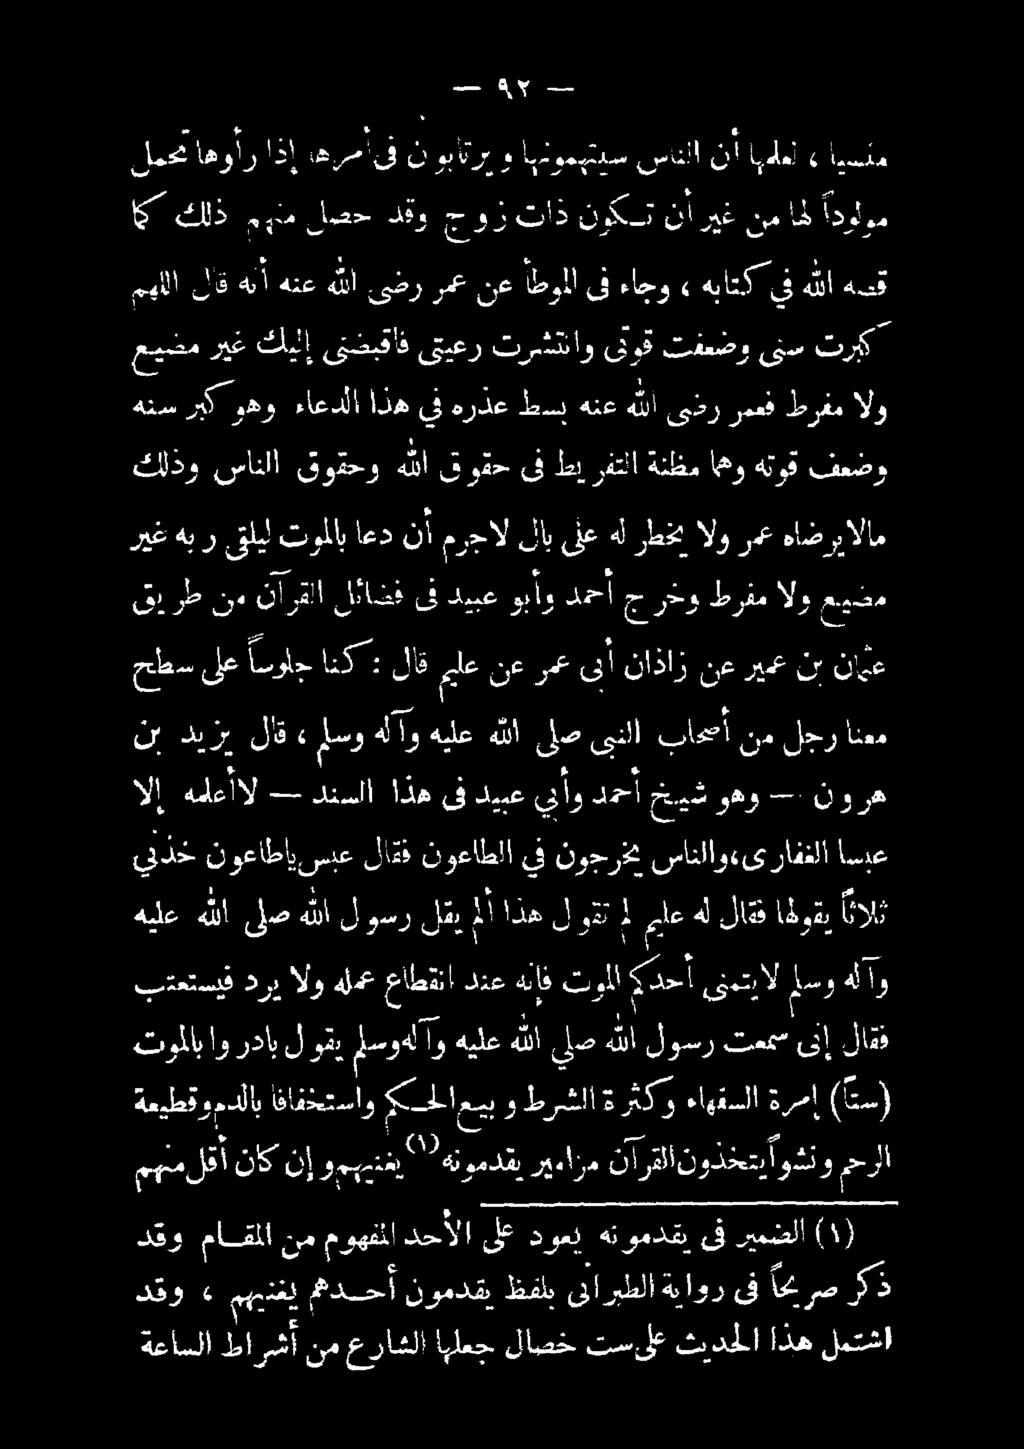 — ٩٢ —
منسيا ، لعلمها أن الناس سيتهمونها ويرتابون فى أمرها إذا رأوها تحمل
مولوداً لها من غير أن تكون ذات زوج وقد حصل منهم ذلك كما
قصه الله في كتابه ، وجاء فى الموطأ عن عمر رضى الله عنه أنه قال اللهم
كبرت سنى وضعفت قوتى وانتشرت رعيتى فاقبضنى إليك غير مضيع
ولا مفرط فعمر رضى الله عنه بسط عذره في هذا الدعاء وهو كبر سنه
وضعف قوته وهما مظنة التفريط فى حقوق الله وحقوق الناس وذلك
مالا يرضاه عمر ولا يخطر له على بال لاجرم أن دعا بالموت ليلقى ربه غير
مضيع ولا مفرط وخرج أحمد وأبو عبيد فى فضائل القرآن من طريق
عثمان بن عمير عن زاذان أبى عمر عن عليم قال : كنا جلوساً على سطح
معنا رجل من أصحاب النبى صلى الله عليه وآله وسلم ، قال يزيد بن
هرون — وهو شيخ أحمد وأبي عبيد فى هذا السند — لا أعلمه إلا
عبسا الغفارى ، والناس يخرجون في الطاعون فقال عبس ياطاعون خذني
ثلاثاً يقولها فقال له عليم لم تقول هذا ألم يقل رسول الله صلى الله عليه
وآله وسلم لا يتمنى أحدكم الموت فإنه عند انقطاع عمله ولا يرد فيستعتب
فقال إنى سمعت رسول الله صلى الله عليه وآله وسلم يقول بادروا بالموت
(ستاً) إمرة السفهاء وكثرة الشرط وبيع الحكم واستخفافا بالدم وقطيعة
الرحم ونشواً يتخذون القرآن مزامير يقدمونه (١) يغنيهم وإن كان أقل منهم
(١) الضمير فى يقدمونه يعود على الأحد المفهوم من المقام وقد
ذكر صريحاً فى رواية الطبرانى بلفظ يقدمون أحدهم يغنيهم ، وقد
اشتمل هذا الحديث على ست خصال جعلها الشارع من أشراط الساعة